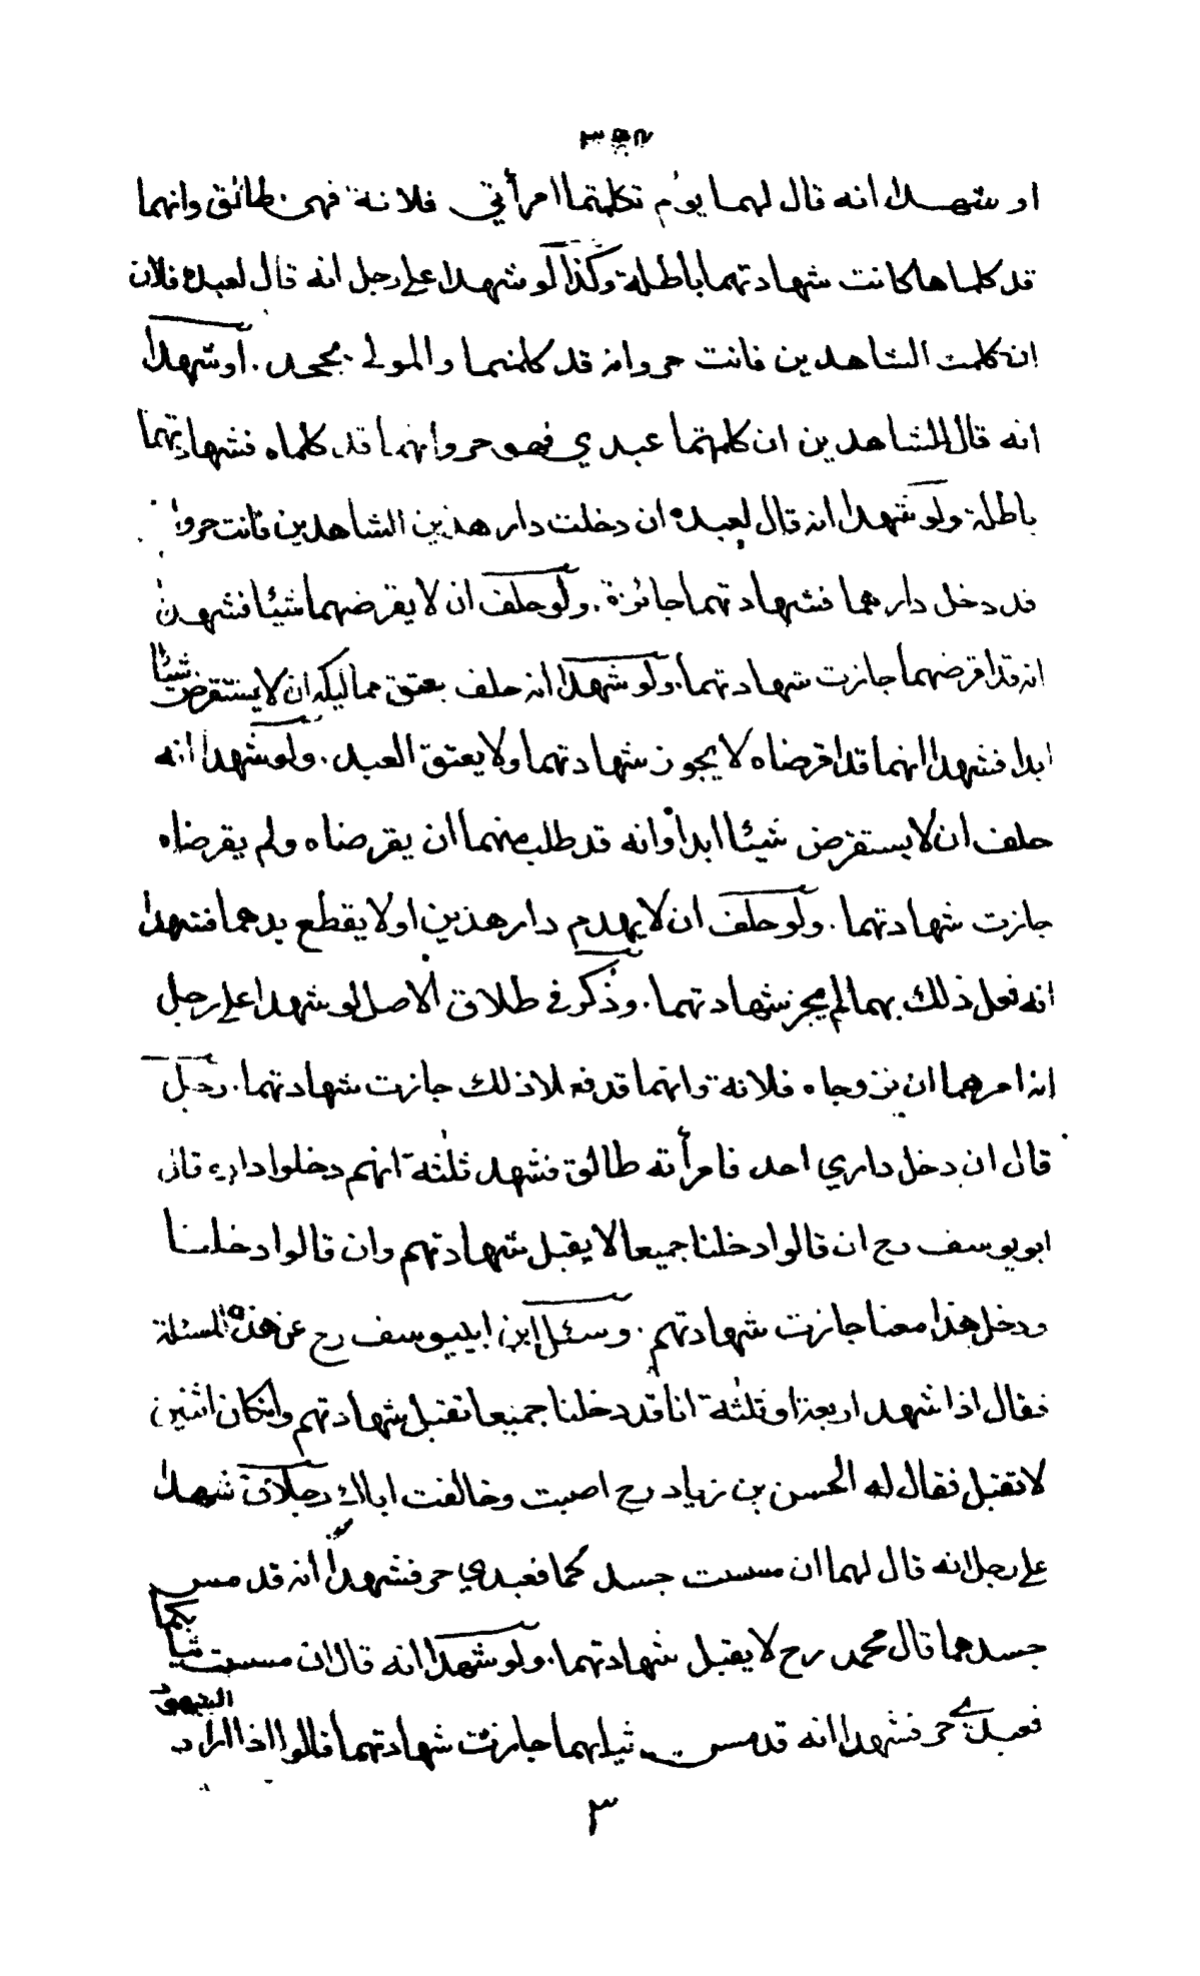 او شهدا انه قال لهما يوم تكلمتما امرأتي فلانة فهي طالق وانهما
قد كلماها كانت شهادتهما باطلة وكذا لو شهدا على رجل انه قال لعبده فلان
ان كلمت الشاهدين فانت حر وانه قد كلمهما والمولى يجحد . او شهدا
انه قال للشاهدين ان كلمتما عبدي فهو حر وانهما قد كلماه فشهادتهما
باطلة ولو شهدا انه قال لعبده ان دخلت دار هذين الشاهدين فانت حر وا
قد دخل دارهما فشهادتهما جائزة . ولو حلف ان لا يقرضهما شيئا فشهدا
انه قد اقرضهما جازت شهادتهما . ولو شهدا انه حلف بعتق مماليكه ان لا يستقرض شيئا
ابدا فشهدا انهما قد اقرضاه لا يجوز شهادتهما ولا يعتق العبد . ولو شهدا انه
حلف ان لا يستقرض شيئا ابدا وانه قد طلب منهما ان يقرضاه ولم يقرضاه
جازت شهادتهما . ولو حلف ان لا يهدم دار هذين او لا يقطع يدهما فشهدا
انه فعل ذلك بهما لم يجز شهادتهما . وذكر في طلاق الاصل لو شهدا على رجل
انه امرهما ان يزوجاه فلانة وانهما قد فعلا ذلك جازت شهادتهما . رجل
قال ان دخل داري احد فامرأته طالق فشهد ثلثة انهم دخلوا داره قال
ابو يوسف رح ان قالوا دخلنا جميعا لا يقبل شهادتهم وان قالوا دخلنا
ودخل هذا معنا جازت شهادتهم . وسئل ابن ابي يوسف رح عن هذه المسئلة
فقال اذا شهد اربعة او ثلثة انا قد دخلنا جميعا تقبل شهادتهم وانكان اثنين
لا تقبل فقال له الحسن بن زياد رح اصبت وخالفت اباك رجلان شهدا
على رجل انه قال لهما ان مسست جسدكما فعبدي حر فشهدا انه قد مس
جسدهما قال محمد رح لا يقبل شهادتهما . ولو شهدا انه قال ان مسست ثيابكما
فعبدي حر فشهدا انه قد مس ثيابهما جازت شهادتهما قالوا اذا اراد
٣